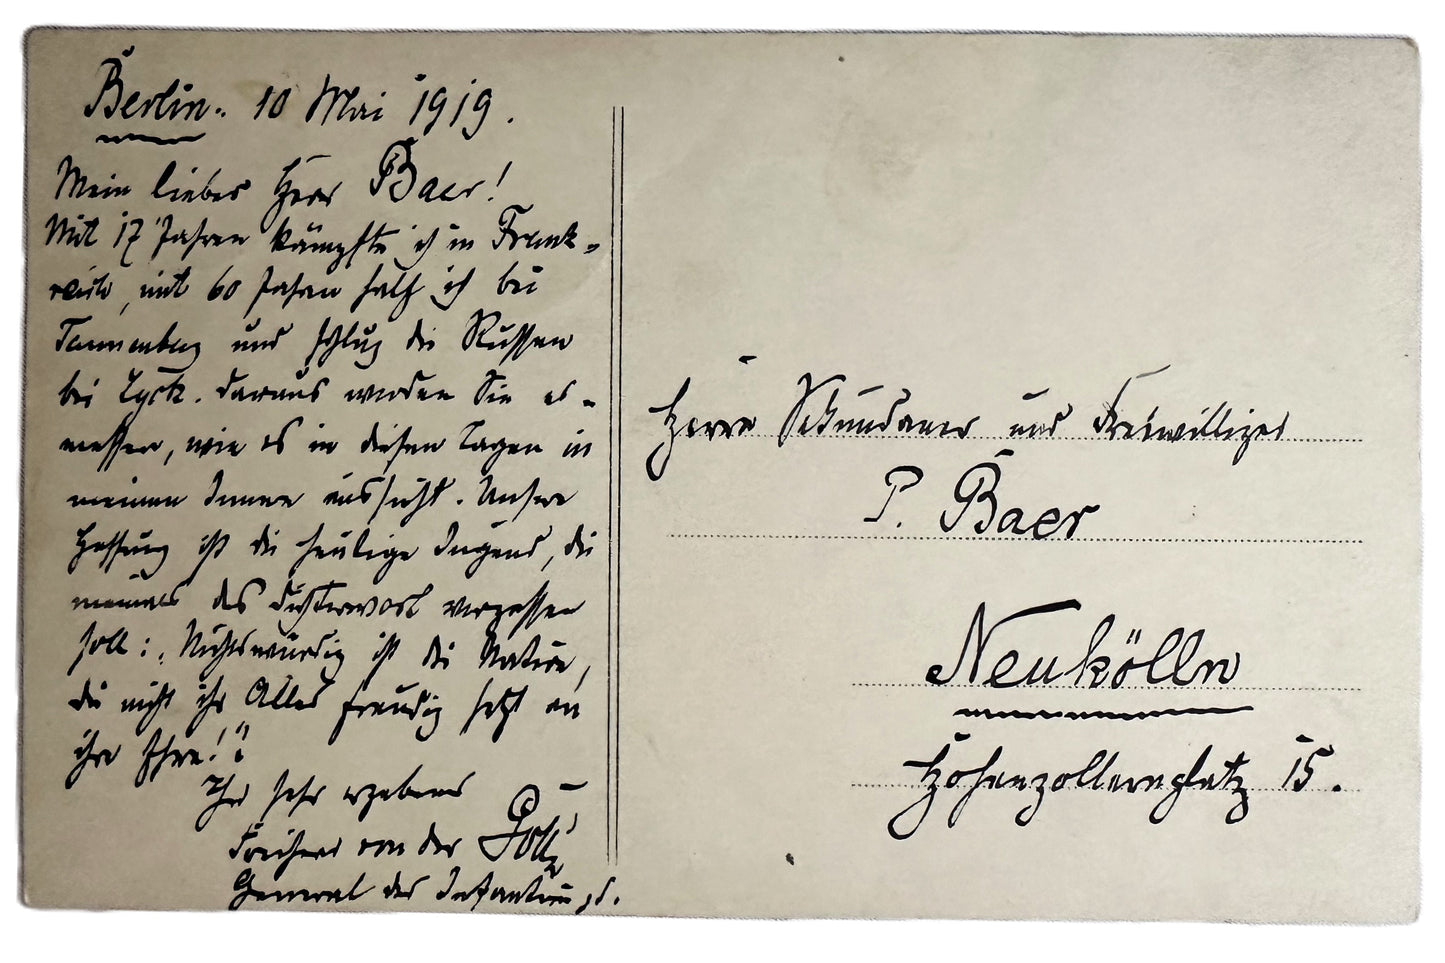 Berlin. 10 Mai 1919.
Mein lieber Herr Baer!
Mit 17 Jahren kämpfte ich in Frank-
reich, mit 60 Jahren half ich bei
Tannenberg und schlug die Russen
bei Lyck. Daraus werden Sie er-
messen, wie es in diesen Tagen in
meinem Innern aussieht. Unsere
Hoffnung ist die heutige Jugend, die
niemals das Dichterwort vergessen
soll: „Nichtswürdig ist die Nation,
die nicht ihr Alles freudig setzt an
ihre Ehre!"
Ihr sehr ergebener
Freiherr von der Goltz
General der Infanterie z. D.
Herrn Sekundaner und Freiwilliger
P. Baer
Neukölln
Hohenzollernplatz 15.